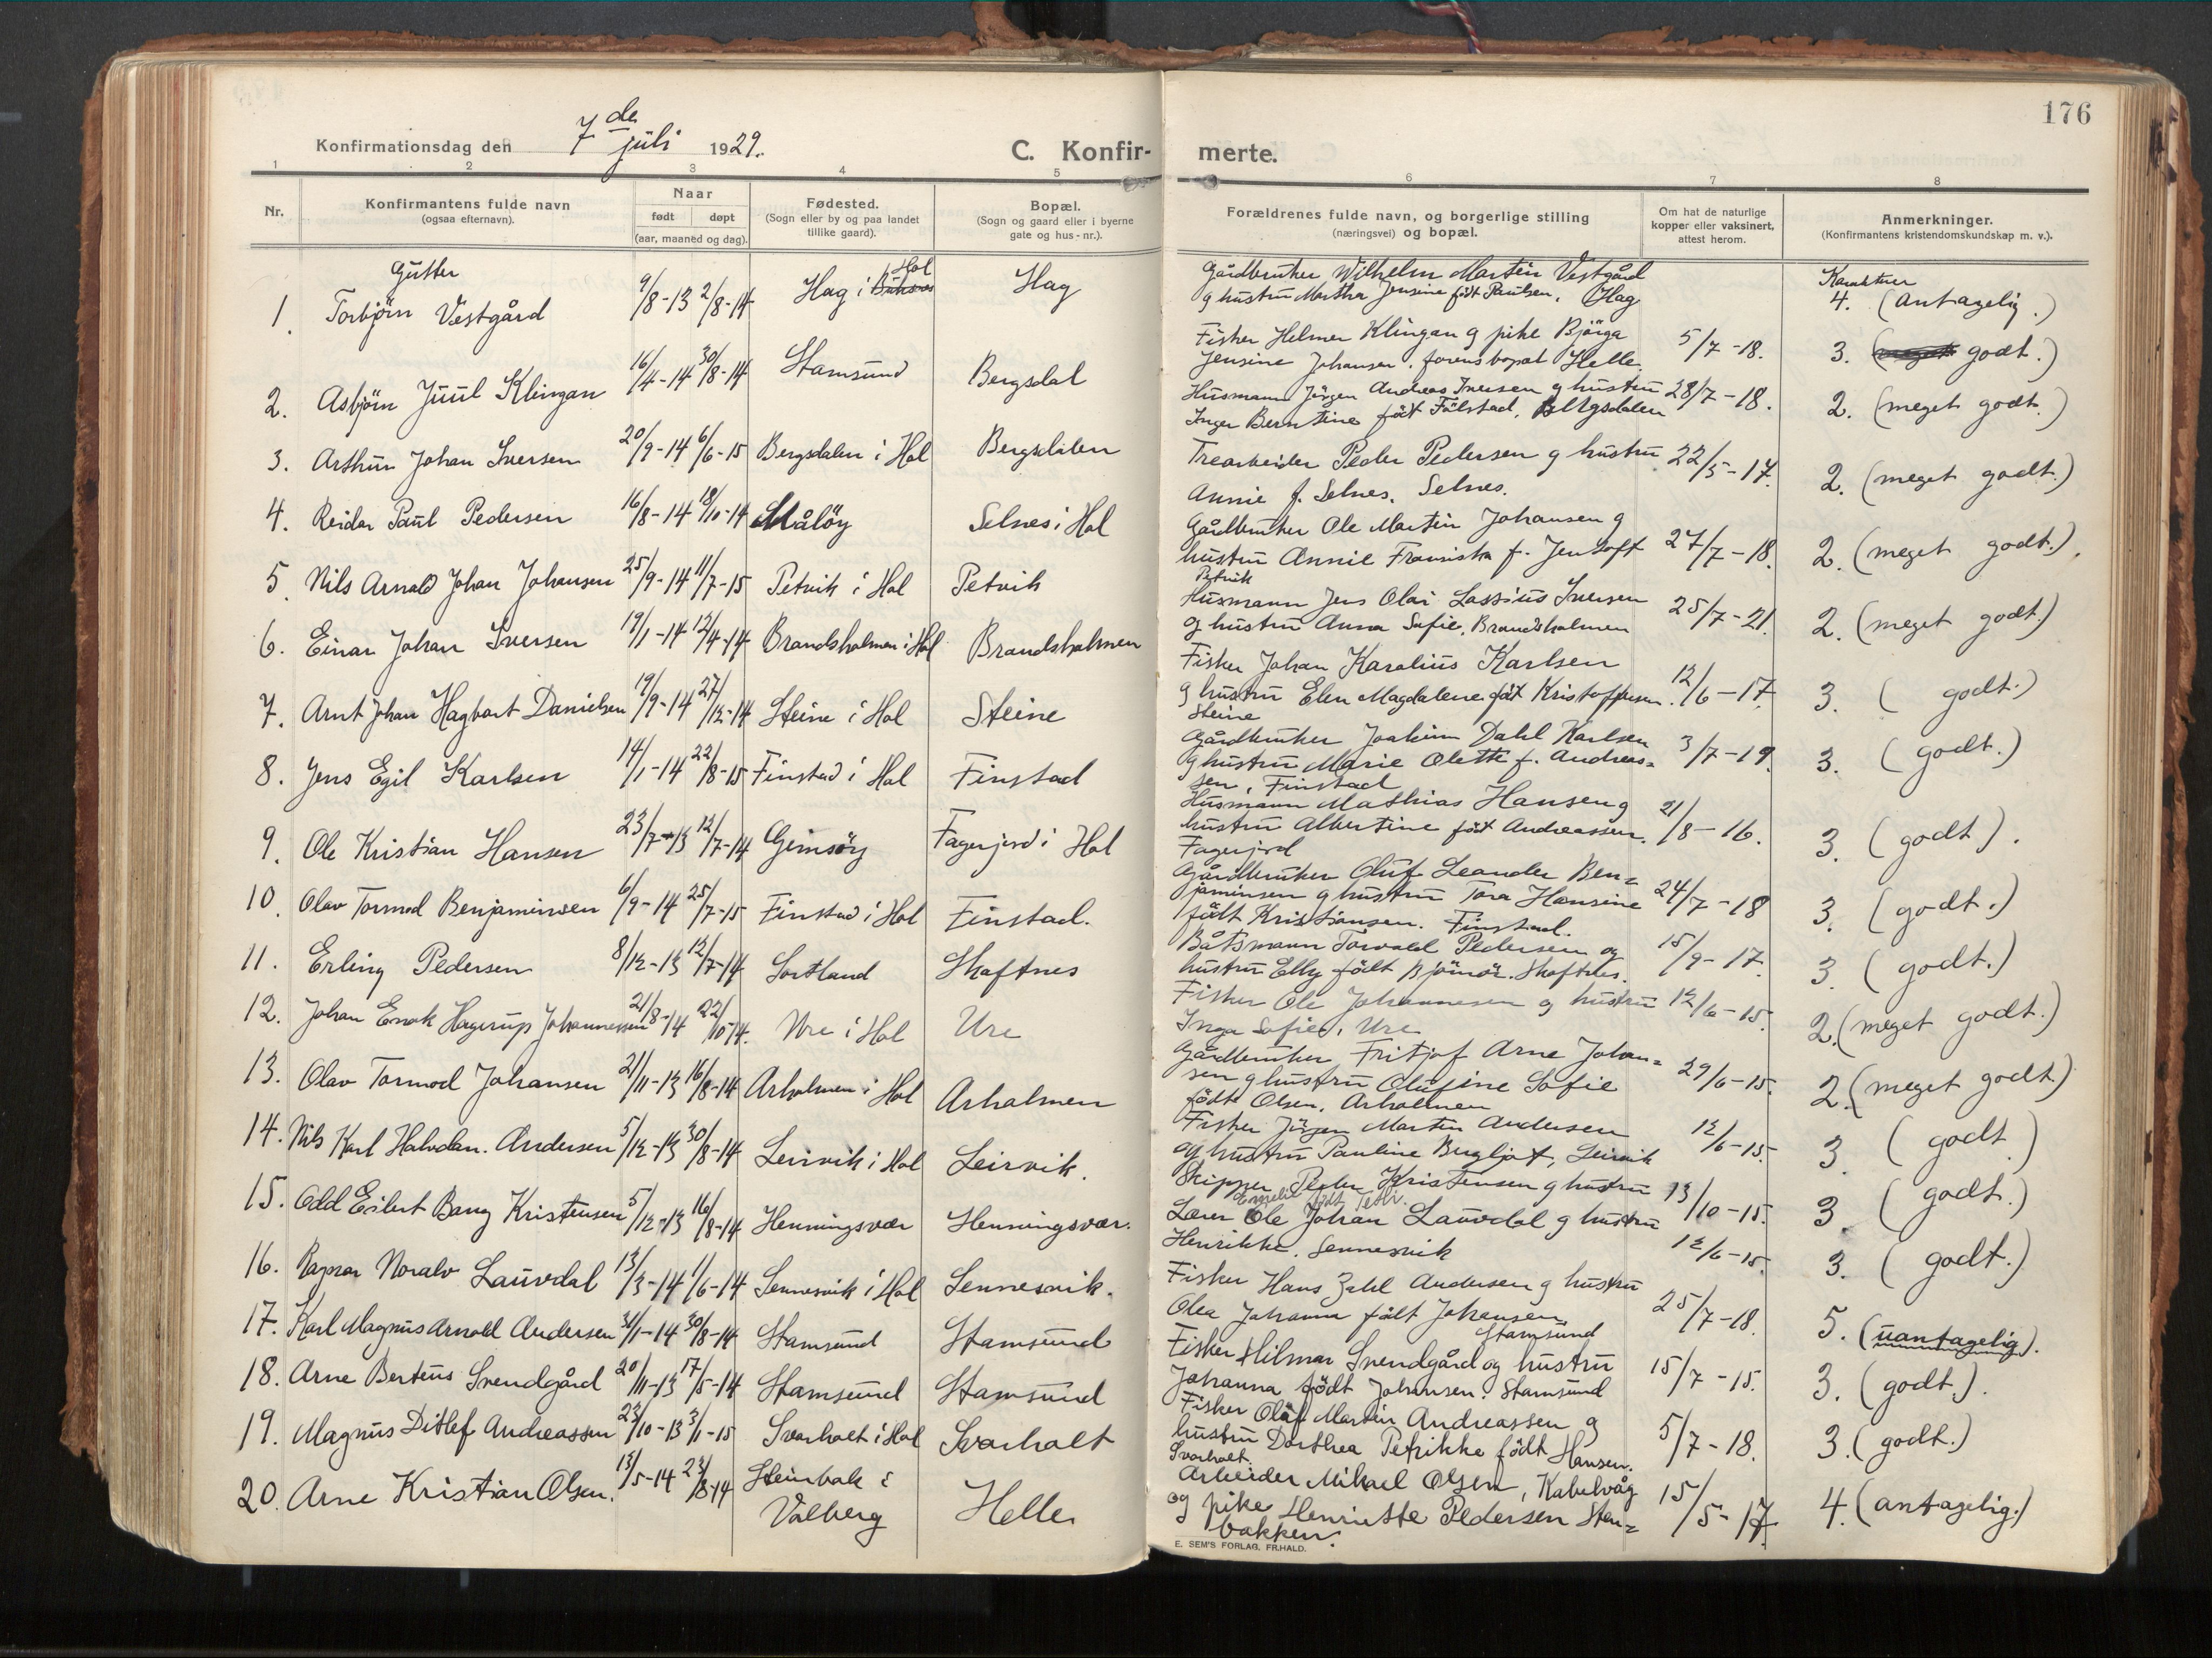 176
Konfirmationsdag den 7de juli 1929.
C. Konfir- merte.
1 2 3 4 5 6 7 8
Nr.
Konfirmantens fulde navn
(ogsaa efternavn).
Naar
født døpt
(aar, maaned og dag).
Fødested.
(Sogn eller by og paa landet
tillike gaard).
Bopæl.
(Sogn og gaard eller i byerne
gate og hus-nr.).
Forældrenes fulde navn, og borgerlige stilling
(næringsvei) og bopæl.
Om hat de naturlige
kopper eller vaksinert,
attest herom.
Anmerkninger.
(Konfirmantens kristendomskundskap m. v.).
Gutter
1. Torbjörn Vestgård 9/8-13 2/8-14 Hag i Hol Hag
2. Asbjörn Juul Klingan 16/4-14 30/8-14 Stamsund Bergsdal
3. Arthur Johan Iversen 20/9-14 6/6-15 Bergsdalen i Hol Bergsdalen
4. Reidar Paul Pedersen 16/8-14 18/10-14 Målöy Selnes i Hol
5. Nils Arnald Johan Johansen 25/9-14 11/7-15 Petvik i Hol Petvik
6. Einar Johan Iversen 19/1-14 12/4-14 Brandsholmen i Hol Brandsholmen
7. Arnt Johan Hagbart Danielsen 19/9-14 27/12-14 Steine i Hol Steine
8. Jens Egil Karlsen 14/1-14 22/8-15 Finstad i Hol Finstad
9. Ole Kristian Hansen 23/7-13 12/7-14 Gimsöy Fagerjord i Hol
10. Olav Tormod Benjaminsen 6/9-14 25/7-15 Finstad i Hol Finstad.
11. Erling Pedersen 8/12-13 12/7-14 Sortland Skaftnes
12. Johan Enok Hagerup Johannessen 21/8-14 22/10-14. Ure i Hol Ure
13. Olav Tormod Johansen 21/11-13 16/8-14 Arholmen i Hol Arholmen
14. Nils Karl Halvdan. Andersen 5/12-13 30/8-14 Leirvik i Hol Leirvik.
15. Odd Eilert Bang Kristensen 5/12-13 16/8-14 Henningsvær Henningsvær.
16. Ragnar Noralv Lauvdal 13/3-14 1/6-14 Sennesvik i Hol Sennesvik.
17. Karl Magnus Arnold Andersen 31/1-14 30/8-14 Stamsund Stamsund
18. Arne Berteus Svendgård 20/11-13 17/5-14 Stamsund Stamsund
19. Magnus Ditlef Andreassen 23/10-13 3/1-15 Svarholt i Hol Svarholt
20. Arne Kristian Olsen. 13/5-14 23/8-14 Steinbak i
Valberg Helle
Gårdbruker Wilhelm Martin Vestgård
g hustru Martha Jensine födt Paulsen. Hag
Karakterer
4. (antagelig.)
Fisker Helmer Klingan g pike Bjørga
Jensine Johansen. farens bopæl Helle. 5/7-18. 3. (godt.)
Husmann Jörgen Andreas Iversen g hustru
Inger Berntine födt Fålstad. Bergsdalen 28/7-18. 2. (meget godt.)
Trearbeider Peder Pedersen g hustru
Annie f. Selnes. Selnes. 22/5-17. 2. (meget godt.)
Gårdbruker Ole Martin Johansen g
hustru Annie Franciska f. Jentoft
Petvik 27/7-18. 2. (meget godt.).
Husmann Jens Olai Lassius Iversen
og hustru Anna Sofie. Brandsholmen 25/7-21. 2. (meget godt.)
Fisker Johan Karolius Karlsen
g hustru Elen Magdalene födt Kristoffersen.
Steine 12/6-17 3. (godt.)
Gårdbruker Joakim Dahl Karlsen
g hustru Marie Olette f. Andreas=
sen, Finstad 3/7-19. 3. (godt.)
Husmann Mathias Hansen g
hustru Albertine födt Andreassen.
Fagerjord 21/8-16. 3. (godt).
Gårdbruker Oluf Leander Ben=
jaminsen g hustru Tora Hansine
födt Kristiansen. Finstad. 24/7-18 3. (godt.)
Båtsmann Torvald Pedersen og
hustru Elly födt Björnör. Skaftnes. 15/9-17. 3. (godt.)
Fisker Ole Johannesen og hustru
Inga Sofie, Ure 12/6-15. 2. (meget godt.)
Gårdbruker Fritjof Arne Johan=
sen g hustru Olufine Sofie
födt Olsen. Arholmen 29/6-15. 2. (meget godt)
Fisker Jörgen Martin Andersen
og hustru Pauline Bergljot, Leirvik 12/6-15. 3. (godt.)
Skipper Peder Kristensen g hustru
Emelie födt 13/10-15. 3. (godt.)
Lærer Ole Johan Lauvdal g hustru
Henrikke. Sennesvik 12/6-15. 3. (godt.)
Fisker Hans Zahl Andersen g hustru
Olea Johanna födt Johansen,
Stamsund 25/7-18. 5. (uantagelig).
Fisker Hilmar Svendgård og hustru
Johanna födt Johansen. Stamsund 15/7-15. 3. (godt.).
Fisker Olaf Martin Andreassen g
hustru Dorthea Petrikke födt Hansen.
Svarholt. 5/7-18. 3. (godt.)
Arbeider Mikael Olsen, Kabelvåg
og pike Henriette Pedersen Sten=
bakken. 15/5-17. 4. (antagelig.)
E. SEM'S FORLAG, FR.HALD.